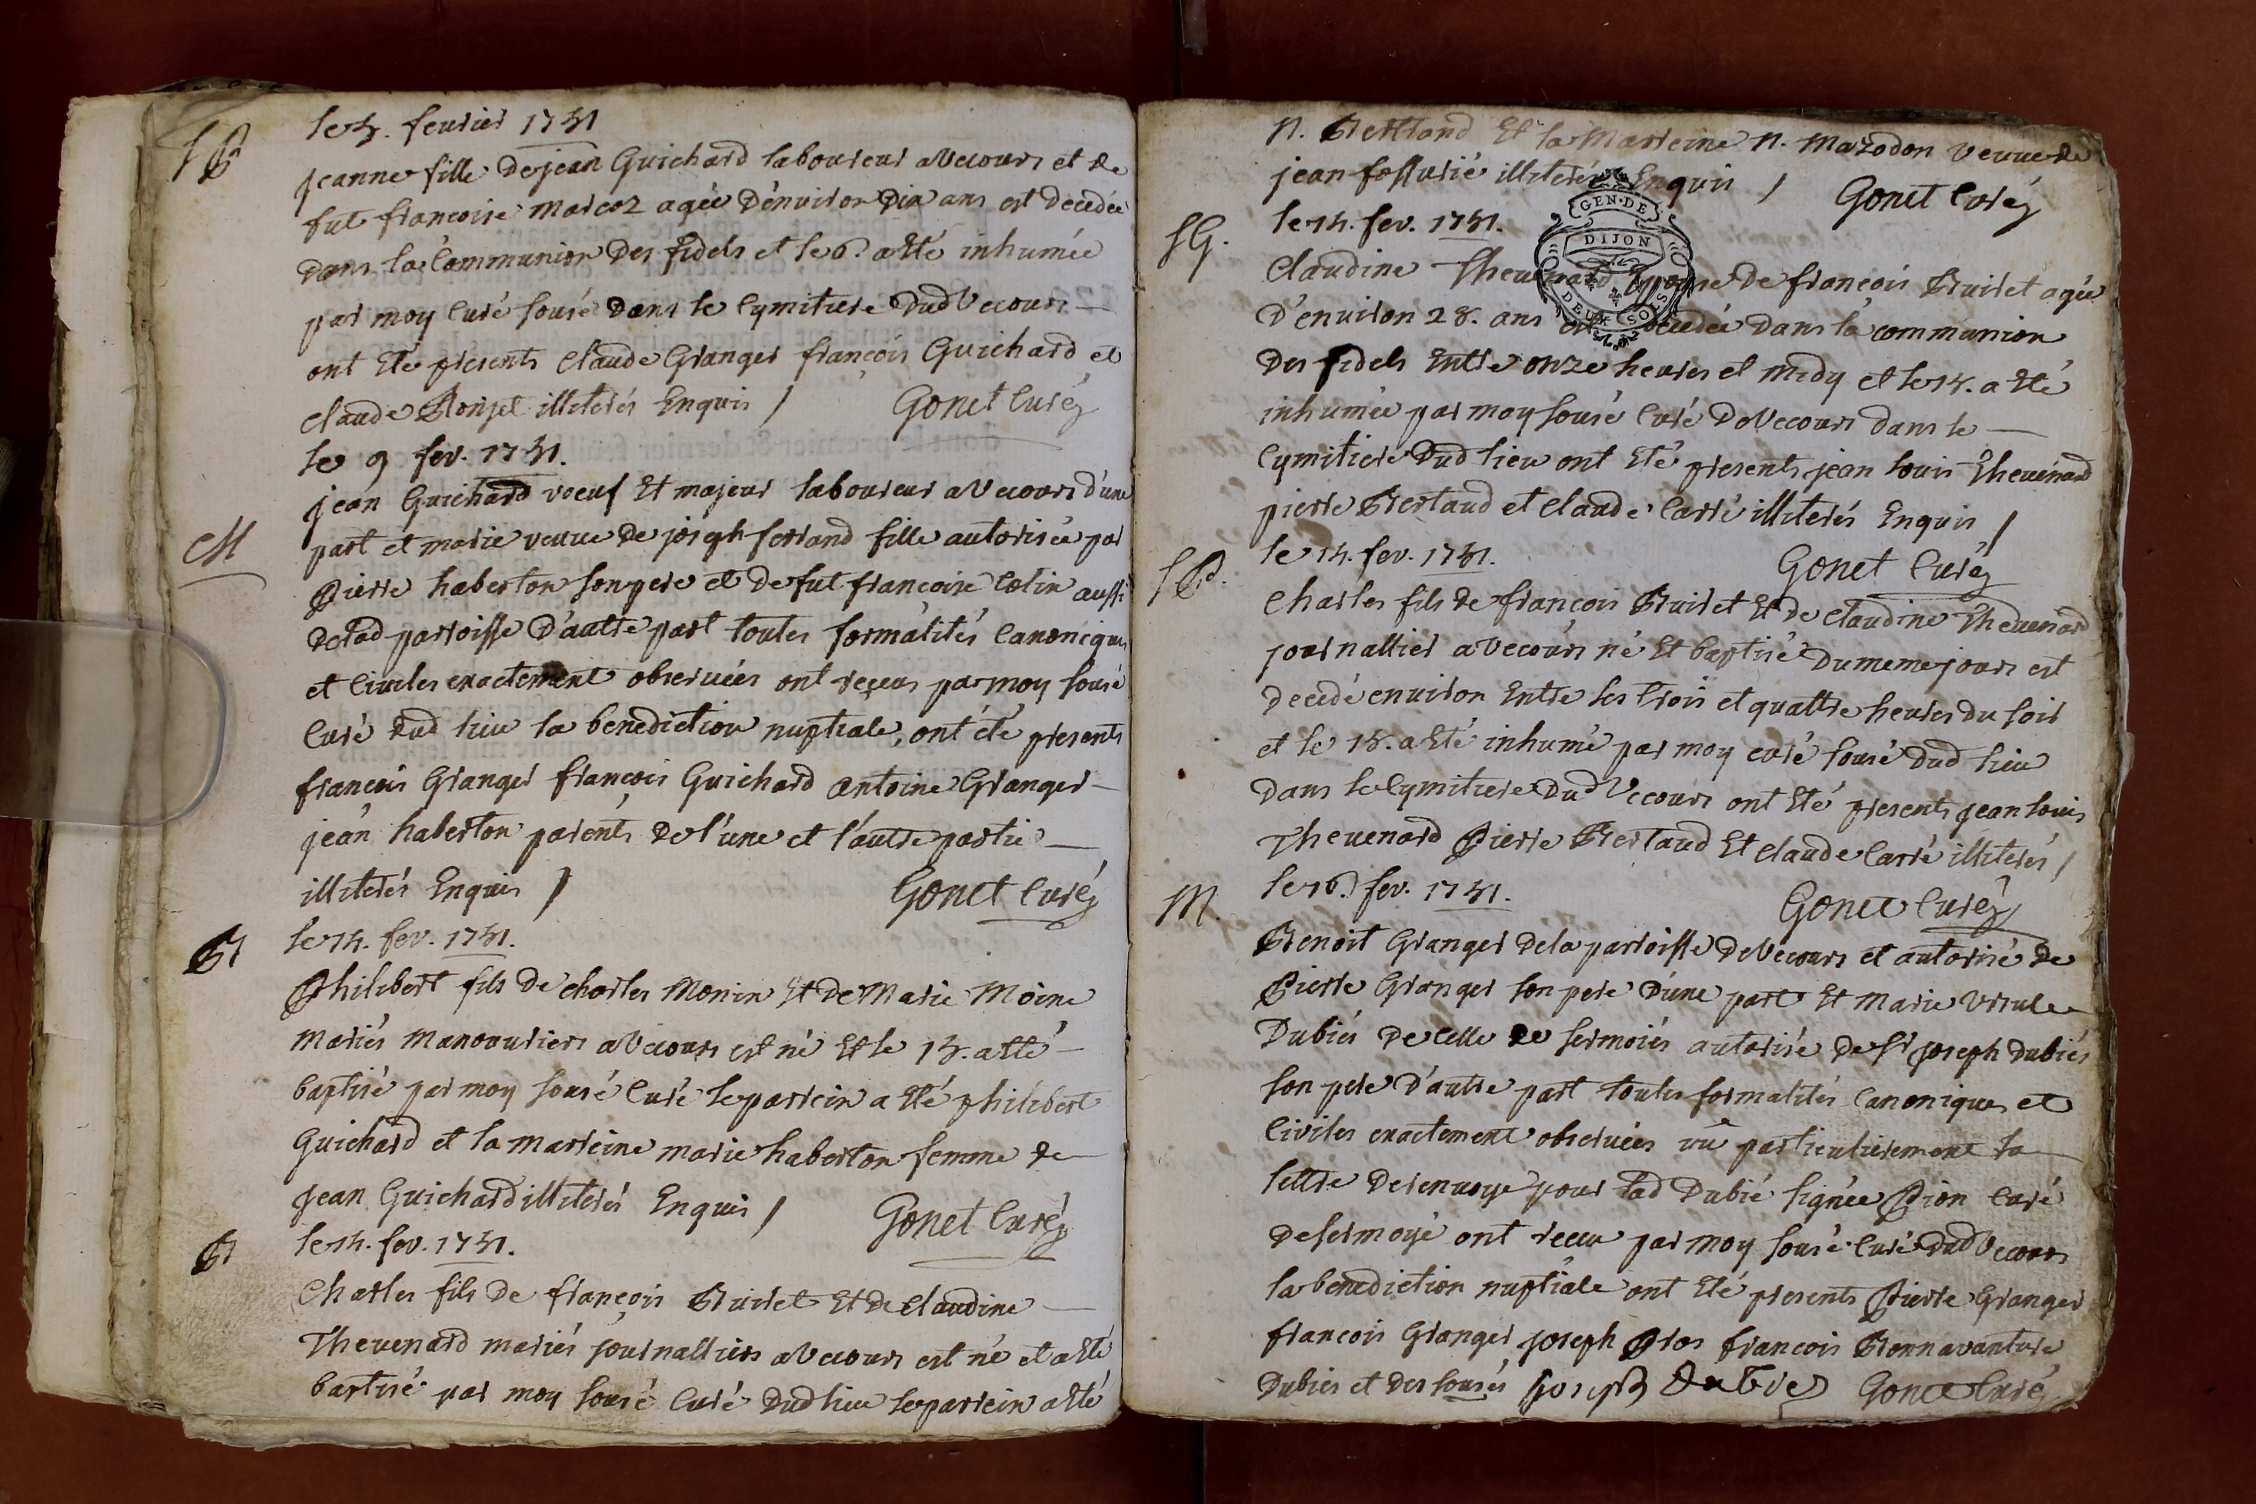 le 5. feurier 1751
jeanne fille de jean Guichard laboureur a Vecours et de
fut francoise marcoz agée d'enuiron dix ans est decedée
dans la Communion des fidels et le 6. a Eté inhumée
par moy Curé sousé dans le Cymitiere dud Vecours
ont Eté presents Claude Granger françois Guichard et
Claude illiterés Enquis / Gonet Curé
le 9 fev. 1751.
jean Guichard voeuf Et majeur laboureur a Vecours d'une
M
part et marie veuue de joseph ferrand fille autorisée par
Pierre haberton son pere et de fut francoise Colin aussi
delad parroisse d'autre part toutes formalités Canoniques
et Ciuiles exactement obseruées ont reçeus par moy sousé
Curé dud lieu la benediction nuptiale, ont été presents
françois Granger françois Guichard antoine Granger
jean haberton parents de l'une et l'autre partie
illiterés Enquis / Gonet Curé
B
le 14. fev. 1751.
Philibert fils de charles Monin Et de Marie Moine
mariés manouuriers a Vecours est né Et le 15. a Eté
baptisé par moy sousé Curé le parrein a Eté philibert
Guichard et la marreine marie haberton femme de
jean Guichard illiterés Enquis / Gonet Curé
B
le 14. fev. 1751.
Charles fils de françois Bruiret Et de Claudine
Thevenard mariés journalliers a Vecours est né et a Eté
baptisé par moy sousé Curé dud lieu le parrein a Eté
n. Bertrand Et la Marreine n. Mazodon veuue de
jean illiterés Enquis / Gonet Curé
GEN. DE
DIJON
DEUX SOLS
le 14. fev. 1751.
Claudine Thevenard Epouse de françois Bruiret agée
d'enuiron 28. ans est decedée dans la communion
des fidels Entre onze heures et midy et le 15. a Eté
inhumée par moy sousé Curé de Vecours dans le
Cymitiere dud lieu ont Eté presents jean louis Thevenard
pierre Bertaud et Claude Carré illiterés Enquis /
le 14. fev. 1751. Gonet Curé
Charles fils de francois Bruiret Et de Claudine Thevenard
journallier a Vecours né Et baptisé du meme jours est
decedé enuiron Entre les trois et quattre heures du soir
et le 15. a Eté inhumé par moy curé sousé dud lieu
dans le Cymitiere dud Vecours ont Eté presents jean louis
Thevenard Pierre Bertaud Et Claude Carré illiterés /
le 16. fev. 1751. Gonet Curé
M.
Benoit Granger de la parroisse de Vecours et autorisé de
Pierre Granger son pere d'une part Et Marie Ursule
Dubiés de Celle de sermoiés autorisée de Sr joseph dubiés
son pere d'autre part toutes formalités Canoniques et
Civiles exactement obseruées vû particulierement la
lettre de renuoye pour lad Dubié signée Pion Curé
de sermoyé ont receu par moy sousé Curé dud Vecours
la benediction nuptiale ont Eté presents Pierre Granger
françois Granger joseph Pros francois Bonnavanture
Dubies et des sousés joseph Dubies Gonet Curé